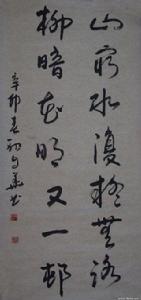 山穷水復疑无路
柳暗花明又一邨
辛卯春初